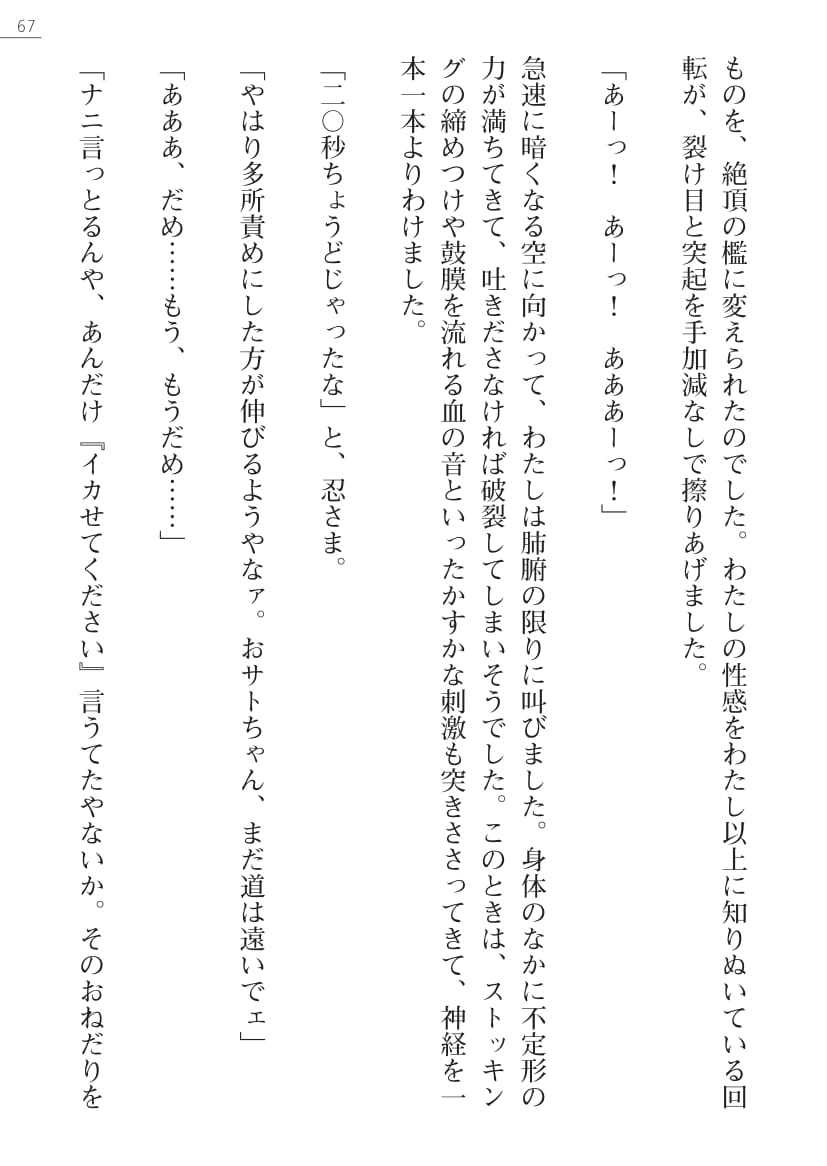 67
ものを、絶頂の檻に変えられたのでした。わたしの性感をわたし以上に知りぬいている回
転が、裂け目と突起を手加減なしで擦りあげました。
「あーっ！　あーっ！　あああーっ！」
急速に暗くなる空に向かって、わたしは肺腑の限りに叫びました。身体のなかに不定形の
力が満ちてきて、吐きださなければ破裂してしまいそうでした。このときは、ストッキン
グの締めつけや鼓膜を流れる血の音といったかすかな刺激も突きささってきて、神経を一
本一本よりわけました。
「二〇秒ちょうどじゃったな」と、忍さま。
「やはり多所責めにした方が伸びるようやなァ。おサトちゃん、まだ道は遠いでェ」
「あああ、だめ……もう、もうだめ……」
「ナニ言っとるんや、あんだけ『イカせてください』言うてたやないか。そのおねだりを